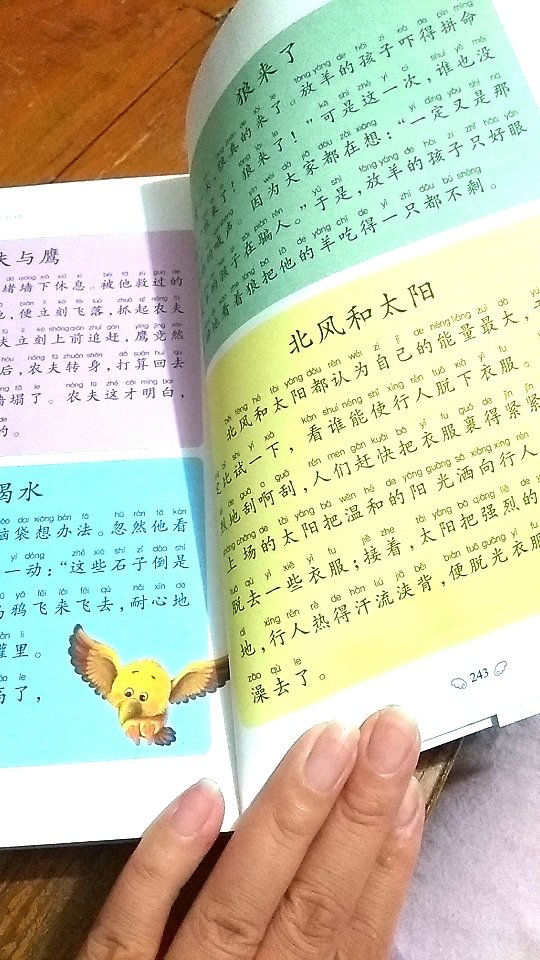 夫与鹰
堵墙下休息。被他救过的
他,便立刻飞落,抓起农夫
夫立刻上前追赶,鹰竟然
后,农夫转身,打算回去
墙塌了。农夫这才明白,
的。
喝水
脑袋想办法。忽然他看
一动:“这些石子倒是
乌鸦飞来飞去,耐心地
罐里。
高了,
狼来了
狼真的来了。放羊的孩子吓得拼命
狼来了!狼来了!”可是这一次,谁也没
因为大家都在想:“一定又是那
孩子在骗人。”于是,放羊的孩子只好眼
看着狼把他的羊吃得一只都不剩。
北风和太阳
北风和太阳都认为自己的能量最大,
比试一下,看谁能使行人脱下衣服。
地刮啊刮,人们赶快把衣服裹得紧紧
上场的太阳把温和的阳光洒向行人
脱去一些衣服;接着,太阳把强烈的
地,行人热得汗流浃背,便脱光衣服
澡去了。
243